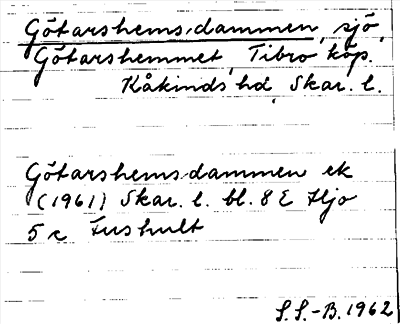 Götarshems-dammen, sjö,
Götarshemmet, Tibro köp.
Kåkinds hd, Skar. l.
Götarshemsdammen ek
(1961) Skar. l. bl. 8 E Hjo
5 c Fushult
S.S.-B. 1962